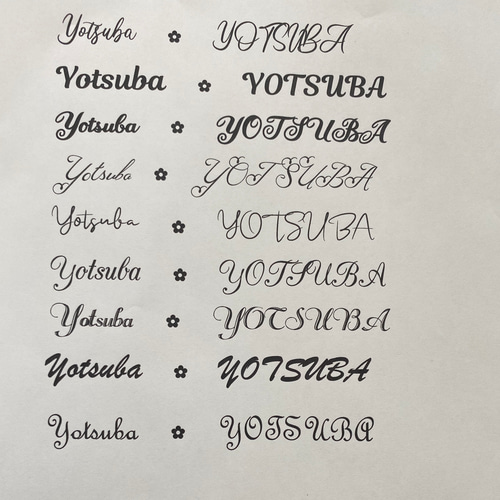 Yotsuba ✿ YOTSUBA
Yotsuba ✿ YOTSUBA
Yotsuba ✿ YOTSUBA
Yotsuba ✿ YOTSUBA
Yotsuba ✿ YOTSUBA
Yotsuba ✿ YOTSUBA
Yotsuba ✿ YOTSUBA
Yotsuba ✿ YOTSUBA
Yotsuba ✿ YOTSUBA